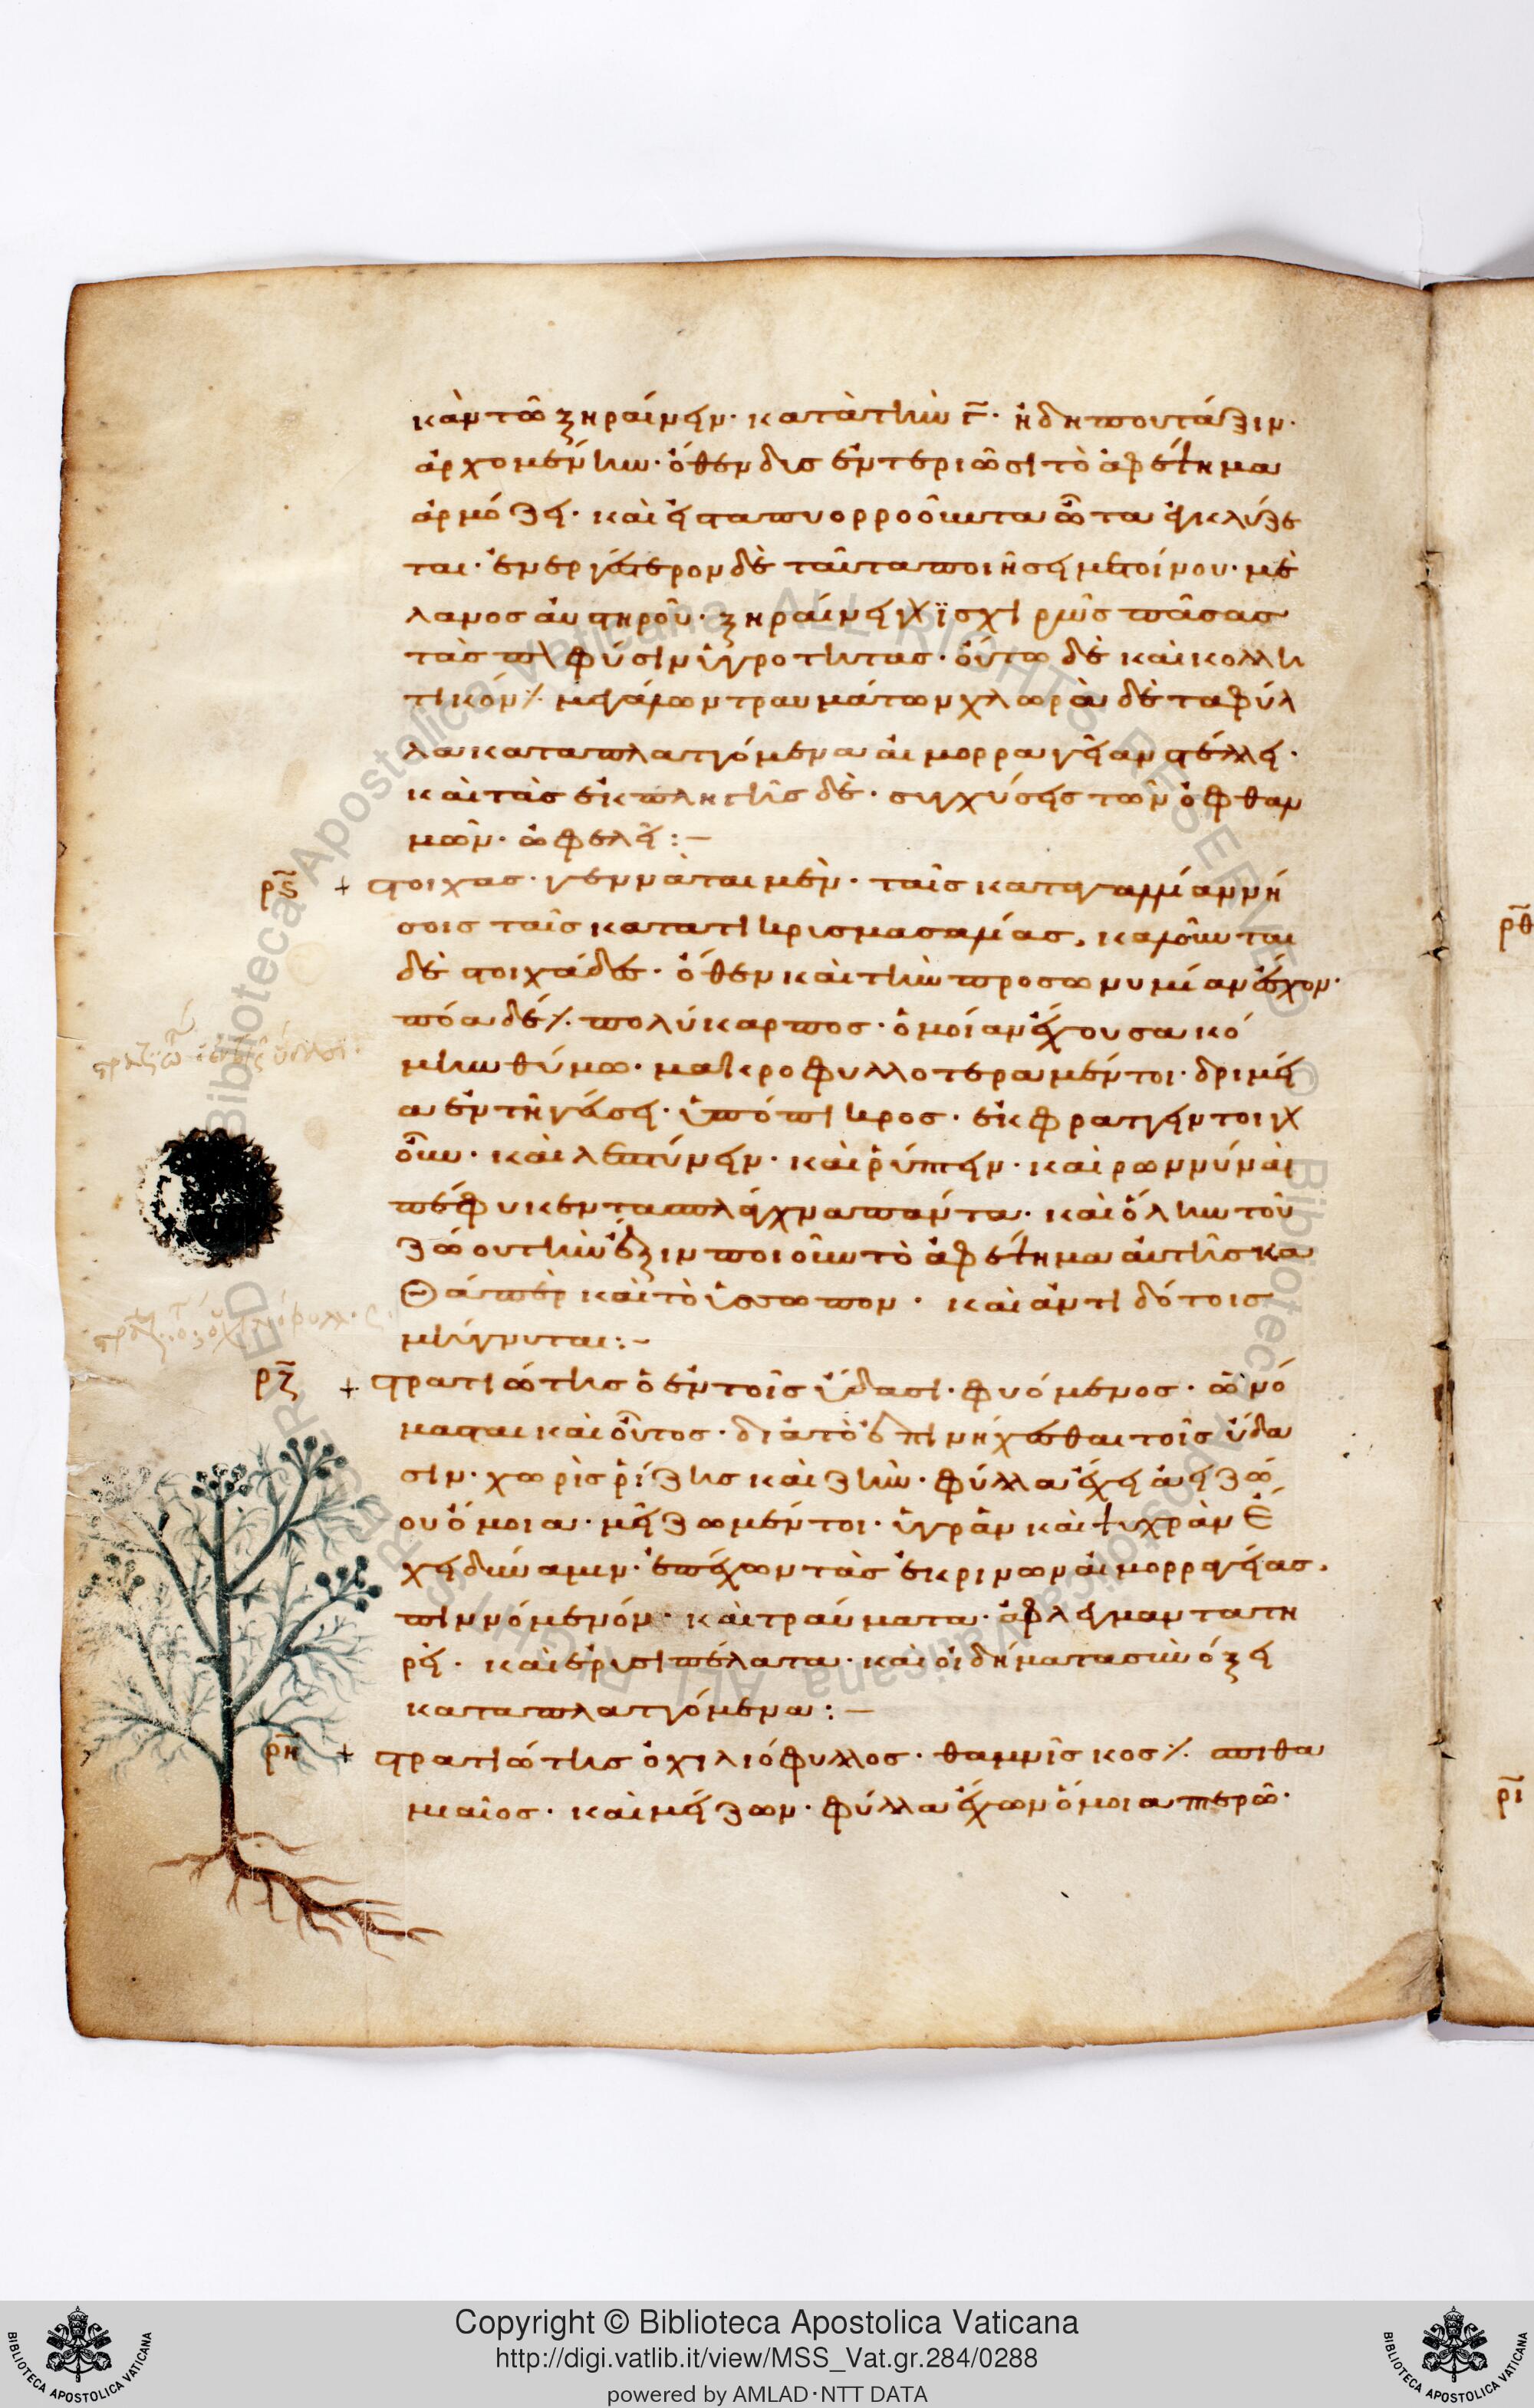 κἀν τῶ ξηραίνειν· κατὰ τὴν γ̄· ἤδη που τάξιν·
ἀρχομένην· ὅθεν δυσεντεριῶσι τὸ ἀφέψημα
ἁρμόζει· καὶ εἰς τα πυορροοῦντα ὦτα ἐγκλύζε
ται· ἐνεργέστερον δὲ ταῦτα ποιήσει μετ οίνου· μέ
λανος αὐστηροῦ· ξηραίνει γὰρ ϊσχυρῶς πάσας
τὰς παρὰ φύσιν ὑγρότητας· ὄυτω δὲ καὶ κολλη
τικόν ἐστι μεγάλων τραυμάτων χλωρὰ δὲ τα φύλ
λα καταπλασσόμενα αἱμορραγεῖαν στέλλει·
καὶ τὰς ἐκ πληγῆς δὲ· συγχύσεις τῶν ὀφθαλ
μῶν· ὠφελεῖ :–
ρϛ̄ + στοιχας· γεννᾶται μὲν· ταῖς κατα γαλλίαν νή
σοις ταῖς κατατικρις μασαλίας, καλοῦνται
δὲ στοιχάδες· ὅθεν καὶ τὴν προσωνυμίαν ἔσχον·
πόα δέ ἐστι πολύκαρπος· ὁμοίαν ἔχουσα κό
μην θύμω· μακροφυλλοτερα μέντοι· δριμεῖ
α ἐν τῆ γεύσει· ὑπόπικρος· ἐκφρασσειν τοιγαρ
οῦν· καὶ λεπτύνειν· καὶ ῥύπτειν· καὶ ρωννύναι
πέφυκεν τα σπλάγχνα πάντα· καὶ ὅλην τοῦ
ζώου τὴν ἕξιν ποιοῦν τὸ ἀφέψημα ἀυτῆς κα
Θάπερ καὶ τὸ ὑσσωπον· καὶ ἀντιδότοις
μίγνυται :–
ρζ̄ + στρατιώτης ὁ ἐν τοῖς ὕδασι· φυόμενος· ὠνό
μασται καὶ οὗτος· διὰ τὸ ἐπινήχεσθαι τοῖς ὕδα
σιν· χωρὶς ῥίζης καὶ ζῆν· φύλλα ἔχει ἀειζώ
ου ὅμοια· μείζω μέντοι· ὑγρὰν καὶ ψυχρὰν ἔ
χει δύναμιν· ἐπέχων τὰς ἐκ ρινων αἱμορραγείας,
πιννόμενόν· καὶ τραύματα· ἀφλέγμαντα τη
ρεῖ· καὶ ἐρυσιπέλατα· καὶ οἰδήματα σὺν ὄξει
καταπλασσόμενα :–
ρη̄ + στρατιώτης ὁ χιλιόφυλλος· θαμνίσκος ἐστι σπιθα
μιαῖος· καὶ μείζων· φύλλα ἔχων ὅμοια πτερῶ·
ρθ̄
ρῑ
Copyright © Biblioteca Apostolica Vaticana
http://digi.vatlib.it/view/MSS_Vat.gr.284/0288
powered by AMLAD·NTT DATA
BIBLIOTECA APOSTOLICA VATICANA
BIBLIOTECA APOSTOLICA VATICANA